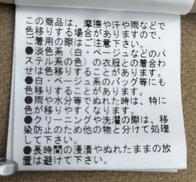 この商品は、摩擦や汗や雨などで
色移りする場合がありますので、
ご着用の際はご注意下さい。
●淡色系(白・ベージュなどのパ
ステル系の色)の衣服との着合わ
せは色移りすることがあります。
●白・ベージュ系のバッグ等にも
色移りすることがあります。
●雨や水分等でぬれた時は、特に
色が移りやすくなります。
●クリーニングや洗濯の際は、移
染防止のため他の物と分けて処理
して下さい。
●長時間の浸漬やぬれたままの放
置は避けて下さい。